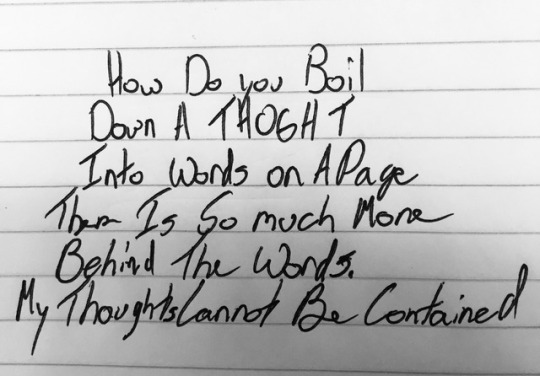 How Do you Boil
Down A THOGHT
Into Words on A Page
There Is So much More
Behind The Words.
My Thoughts Cannot Be Contained